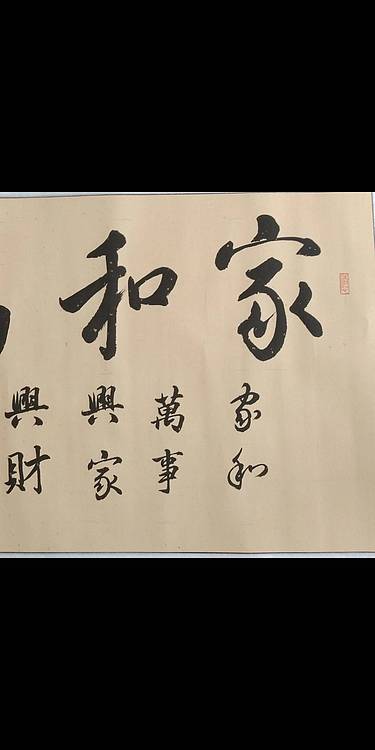 家和
家和
萬事
興家
興財